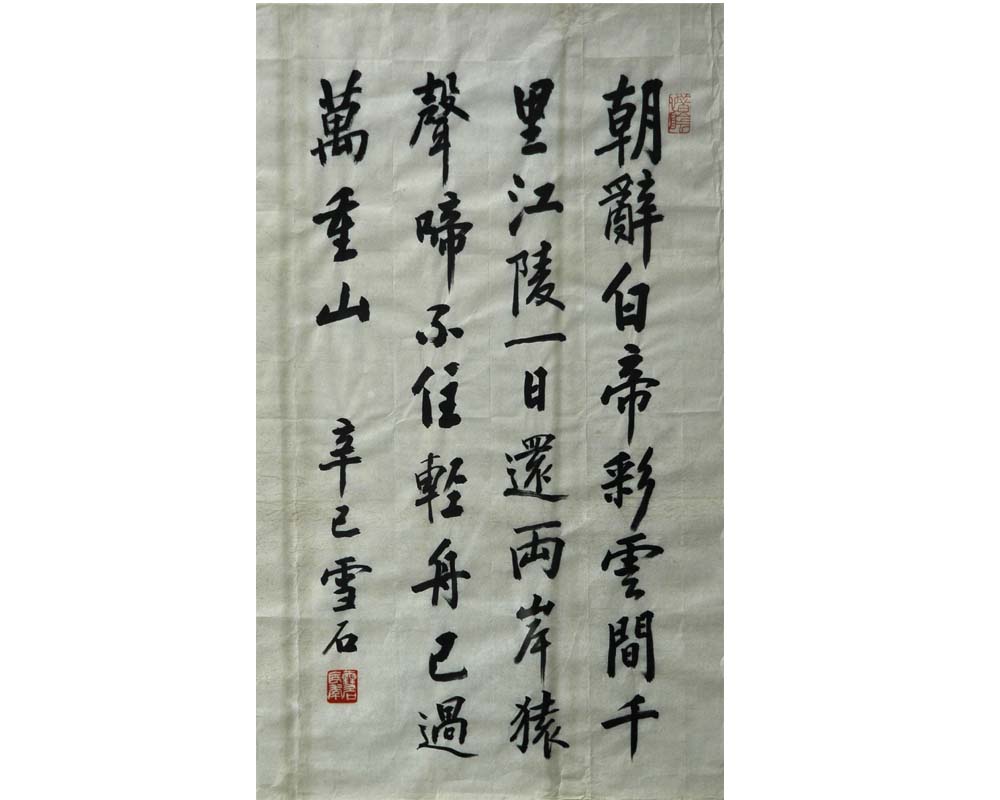 朝辭白帝彩雲間千
里江陵一日還兩岸猿
聲啼不住輕舟已過
萬重山 辛巳雪石